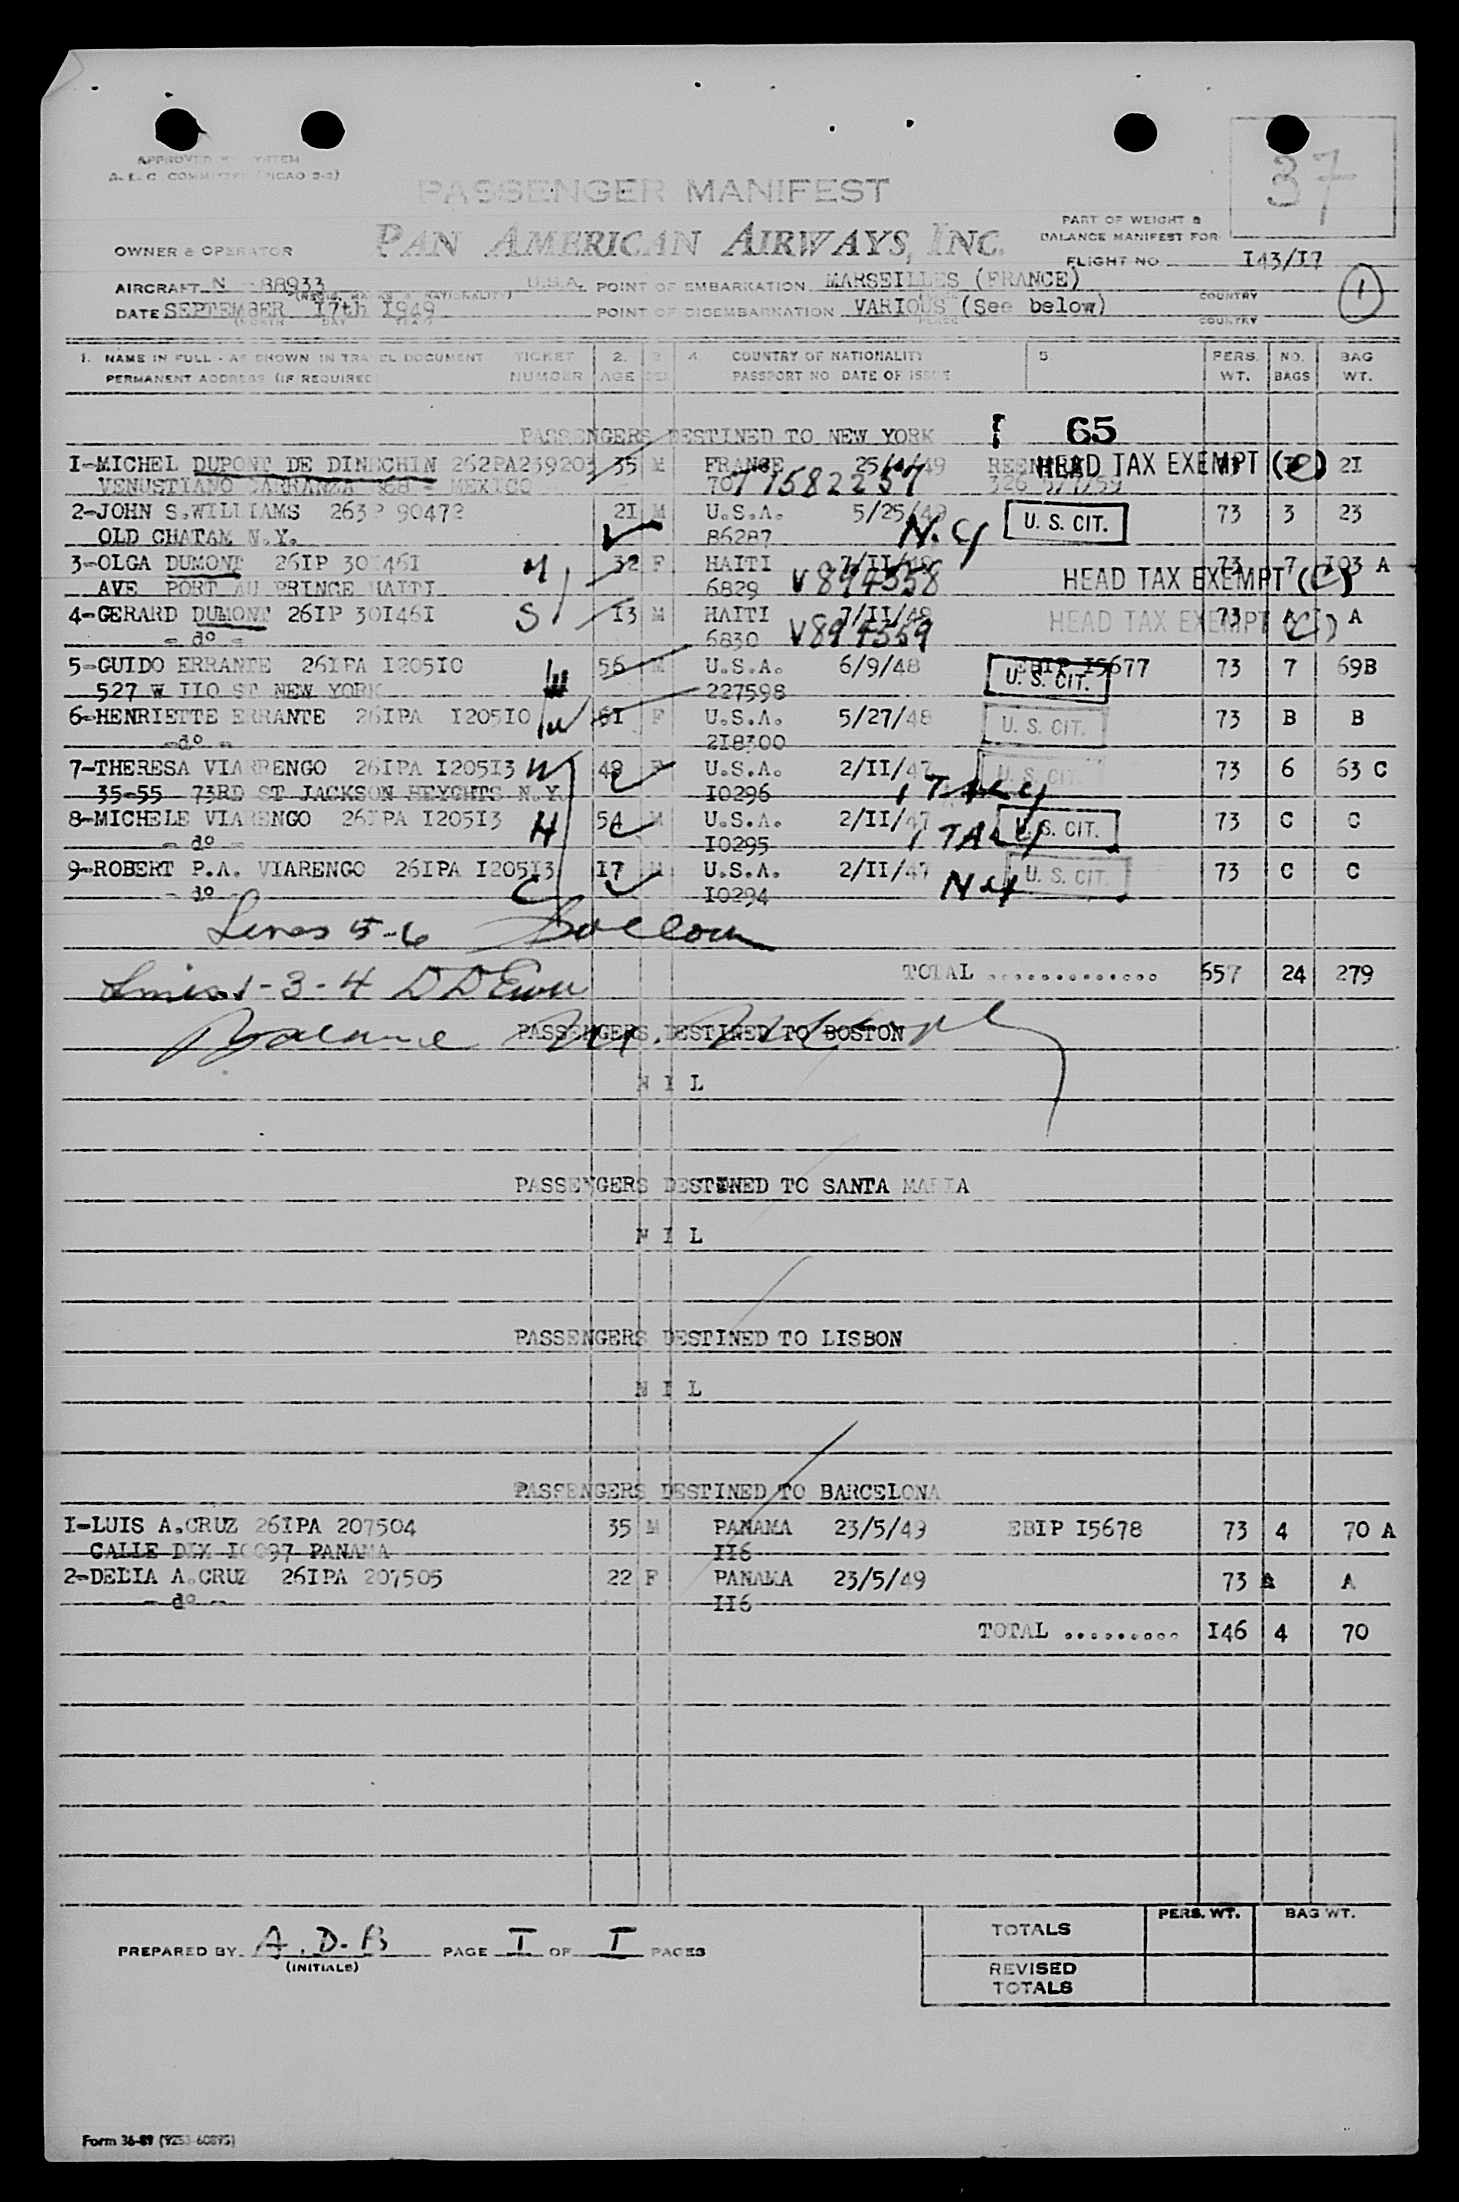 37
APPROVED BY SYSTEM
A. E. C. COMMITTEE (PICAO 2-2)
PASSENGER MANIFEST
PART OF WEIGHT &
BALANCE MANIFEST FOR
OWNER & OPERATOR PAN AMERICAN AIRWAYS, INC.
FLIGHT NO I43/I7
AIRCRAFT N - 88933 U.S.A. POINT OF EMBARKATION MARSEILLES (FRANCE) COUNTRY
DATE SEPTEMBER I7th I949 POINT OF DISEMBARKATION VARIOUS (See below) COUNTRY
(MONTH DAY YEAR) PLACE
1
1. NAME IN FULL - AS SHOWN IN TRAVEL DOCUMENT TICKET 2. 3 4. COUNTRY OF NATIONALITY 5. PERS. NO. BAG
PERMANENT ADDRESS (IF REQUIRED) NUMBER AGE SEX PASSPORT NO DATE OF ISSUE WT. BAGS WT.
PASSENGERS DESTINED TO NEW YORK 65
I-MICHEL DUPONT DE DINECHIN 262PA239203 35 M FRANCE 25/ /49 HEAD TAX EXEMPT 2I
VENUSTIANO CARRANZA - MEXICO
2-JOHN S.WILLIAMS 263P 90472 2I M U.S.A. 5/25/49 U. S. CIT. 73 3 23
OLD CHATAM N.Y. 86287 N.Y
3-OLGA DUMONT 26IP 30I46I M 32 F HAITI 7/II/48 73 7 I03 A
AVE PORT AU PRINCE HAITI 6829 V894558 HEAD TAX EXEMPT (C)
4-GERARD DUMONT 26IP 30I46I S I3 M HAITI 7/II/48 73 A A
- do - 6830 V894559 HEAD TAX EXEMPT (C)
5-GUIDO ERRANTE 26IPA I205I0 56 M U.S.A. 6/9/48 EBIP I5677 73 7 69B
527 W II0 ST NEW YORK 227598 U. S. CIT.
6-HENRIETTE ERRANTE 26IPA I205I0 W 6I F U.S.A. 5/27/48 73 B B
- do - 2I8300 U. S. CIT.
7-THERESA VIARENGO 26IPA I205I3 W 49 F U.S.A. 2/II/47 U. S. CIT. 73 6 63 C
35-55 73RD ST JACKSON HEYGHTS N.Y. I0296 ITALY
8-MICHELE VIARENGO 26IPA I205I3 H 54 M U.S.A. 2/II/47 U. S. CIT. 73 C C
- do - I0295 ITALY
9-ROBERT P.A. VIARENGO 26IPA I205I3 C I7 M U.S.A. 2/II/47 U. S. CIT. 73 C C
- do - I0294 N.Y
Lines 5-6
TOTAL ............. 657 24 279
Lines 1-3-4
Balance
PASSENGERS DESTINED TO BOSTON
N I L
PASSENGERS DESTINED TO SANTA MARIA
N I L
PASSENGERS DESTINED TO LISBON
N I L
PASSENGERS DESTINED TO BARCELONA
I-LUIS A.CRUZ 26IPA 207504 35 M PANAMA 23/5/49 EBIP I5678 73 4 70 A
CALLE DIX I0097 PANAMA II6
2-DELIA A.CRUZ 26IPA 207505 22 F PANAMA 23/5/49 73 A A
- do - II6
TOTAL ......... I46 4 70
PERS. WT. BAG WT.
TOTALS
PREPARED BY A.D.B PAGE I OF I PAGES
(INITIALS)
REVISED
TOTALS
Form 36-89 (9253-60895)